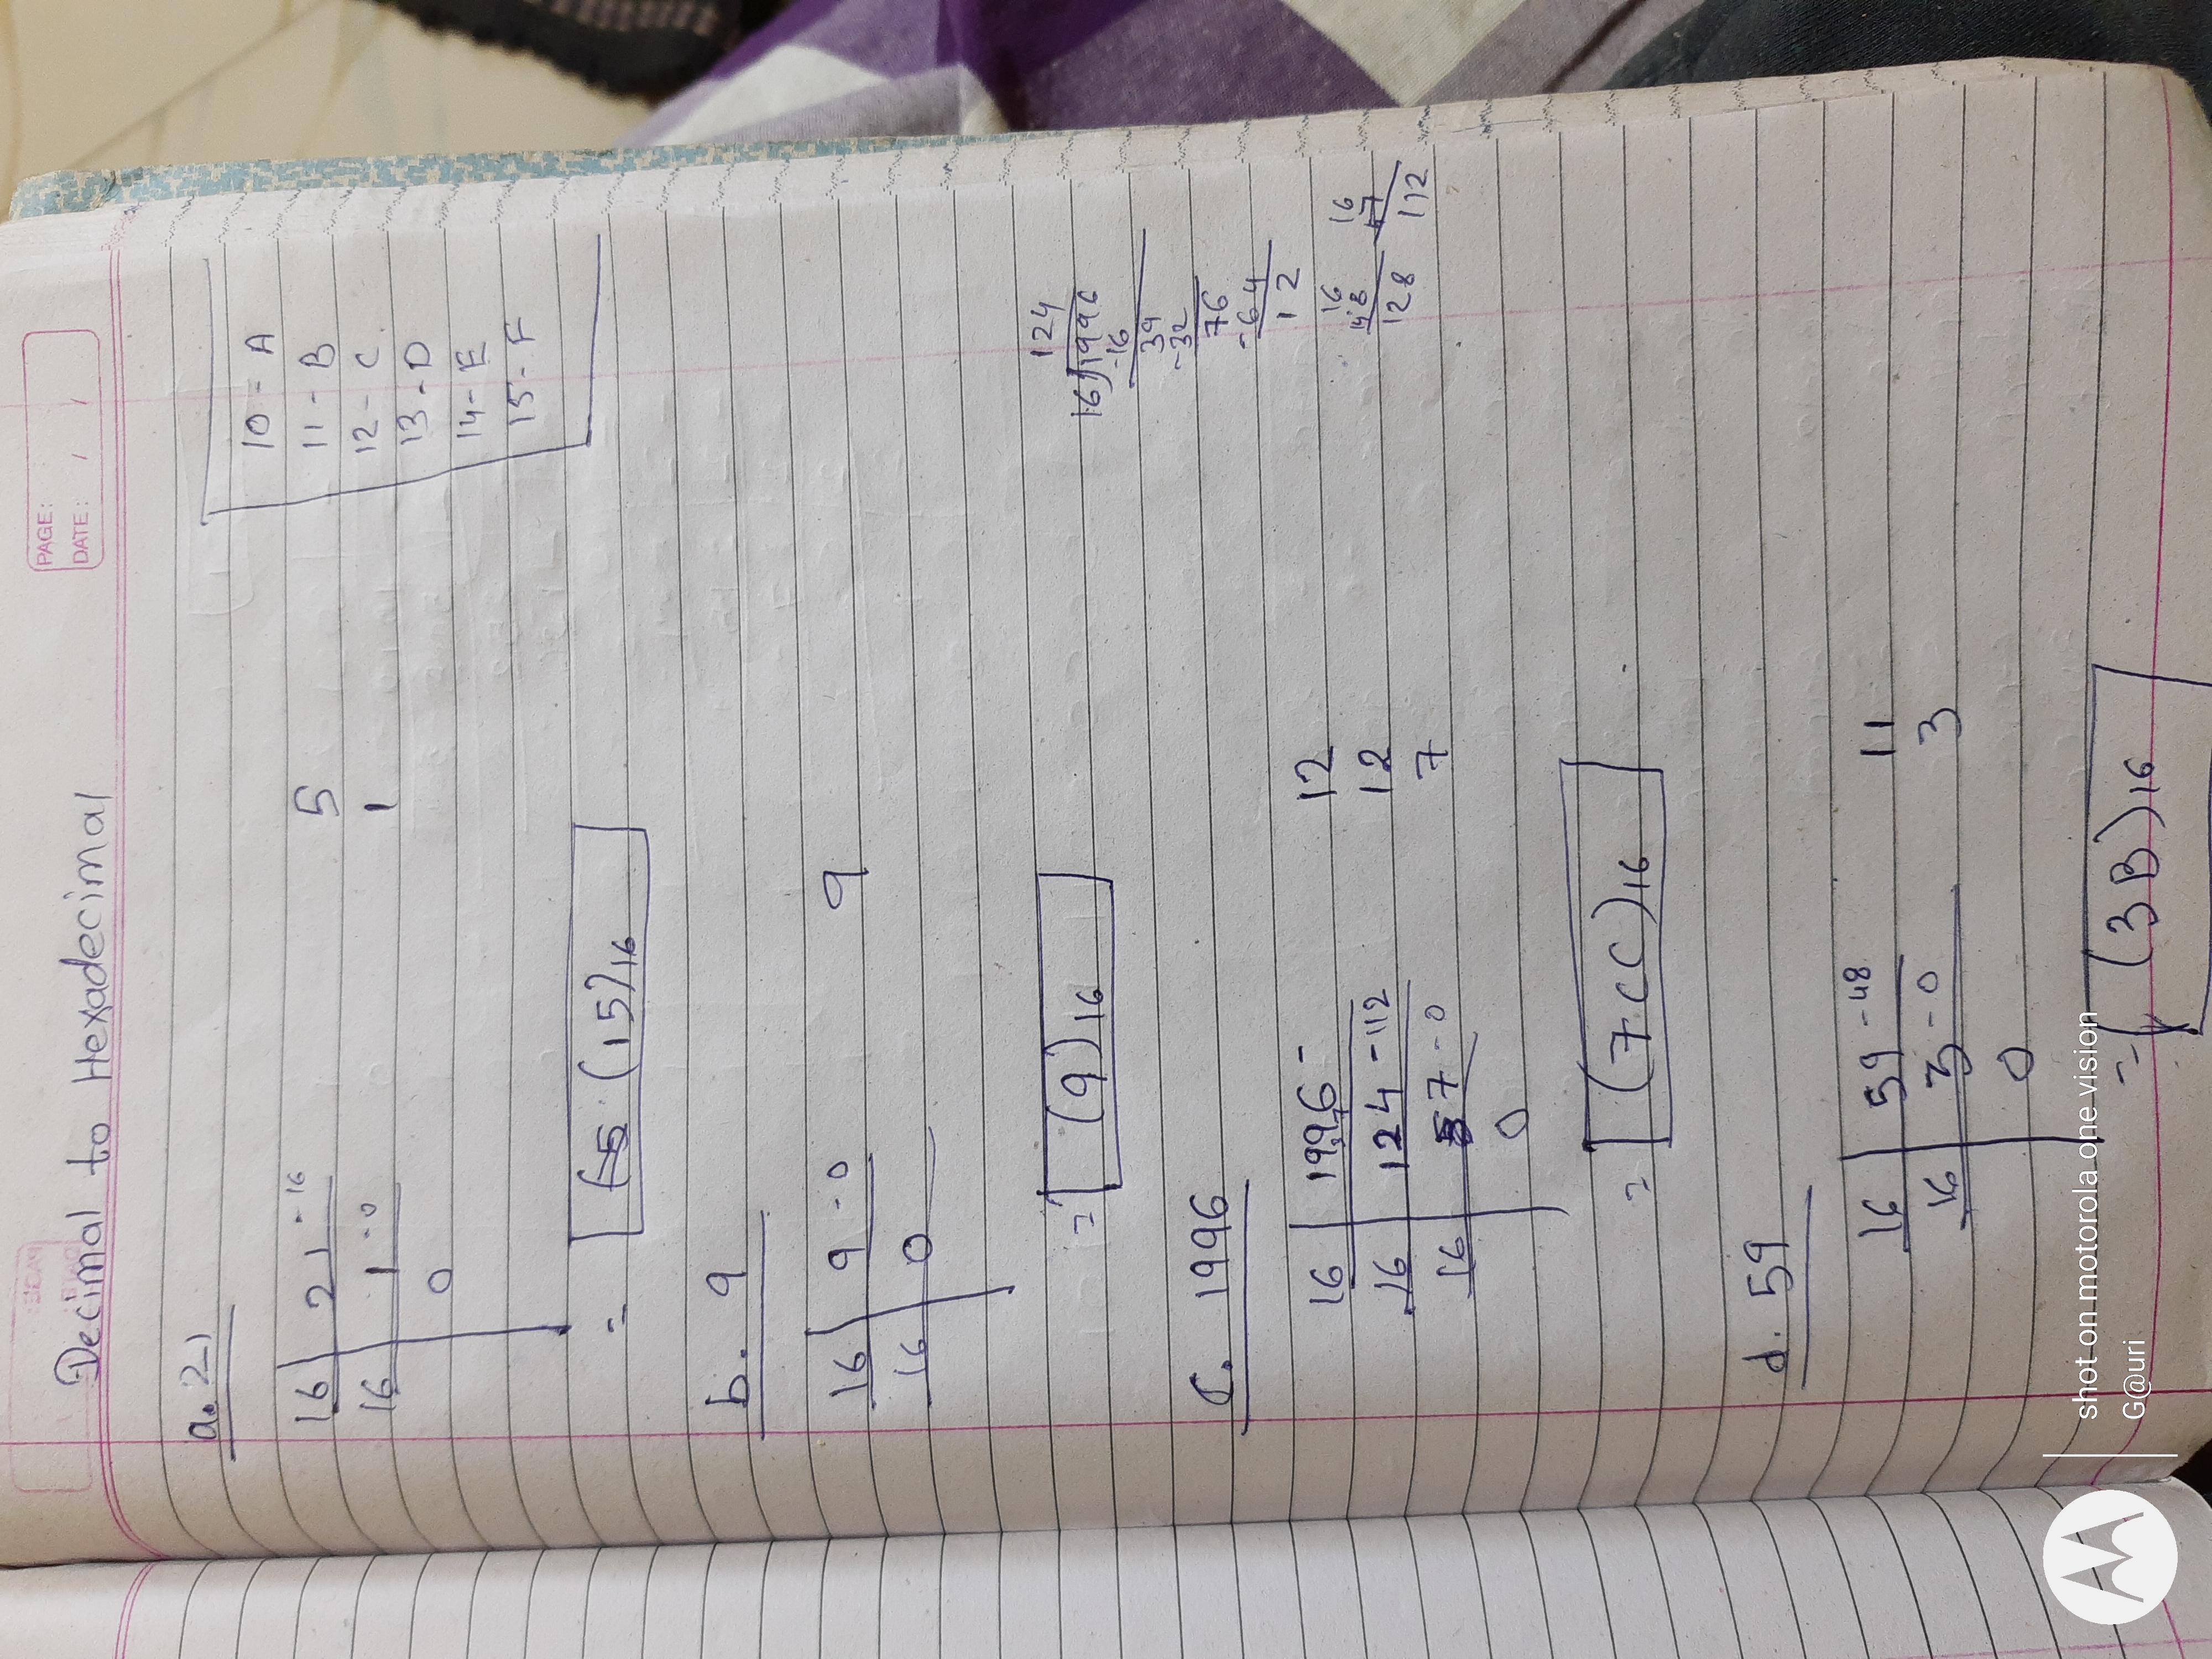 PAGE:
DATE: / /
Decimal to Hexadecimal
a. 21
16 21 - 16 5
16 1 - 0 1
0
= (15)16
10 - A
11 - B
12 - C
13 - D
14 - E
15 - F
b. 9
16 9 - 0 9
16 0
= (9)16
c. 1996
16 1996 - 12
16 124 - 112 12
16 7 - 0 7
0
= (7CC)16
124
16)1996
-16
39
-32
76
-64
12
16
8
128
16
7
112
d. 59
16 59 - 48 11
16 3 - 0 3
0
= (3B)16
shot on motorola one vision
G@uri